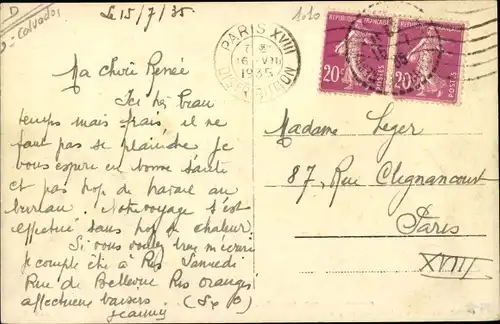 D
Calvados
Le 15/7/35
1010
PARIS XVIII
16 VII
1935
DISTRIBUTION
REPUBLIQUE FRANCAISE
20c POSTES
REPUBLIQUE FRANCAISE
20c POSTES
Ma chère Renée
Ici très beau
temps mais frais, il ne
faut pas se plaindre je
vous espère en bonne santé
et pas trop de travail au
bureau. Notre voyage s'est
effectué sans trop de chaleur.
Si vous voulez m'écrire
je compte être à Ris Samedi
Rue de Bellevue Ris orangis
affectueux baisers (S et O)
Jeanny
Madame Leger
87, Rue Clignancourt
Paris
XVIII